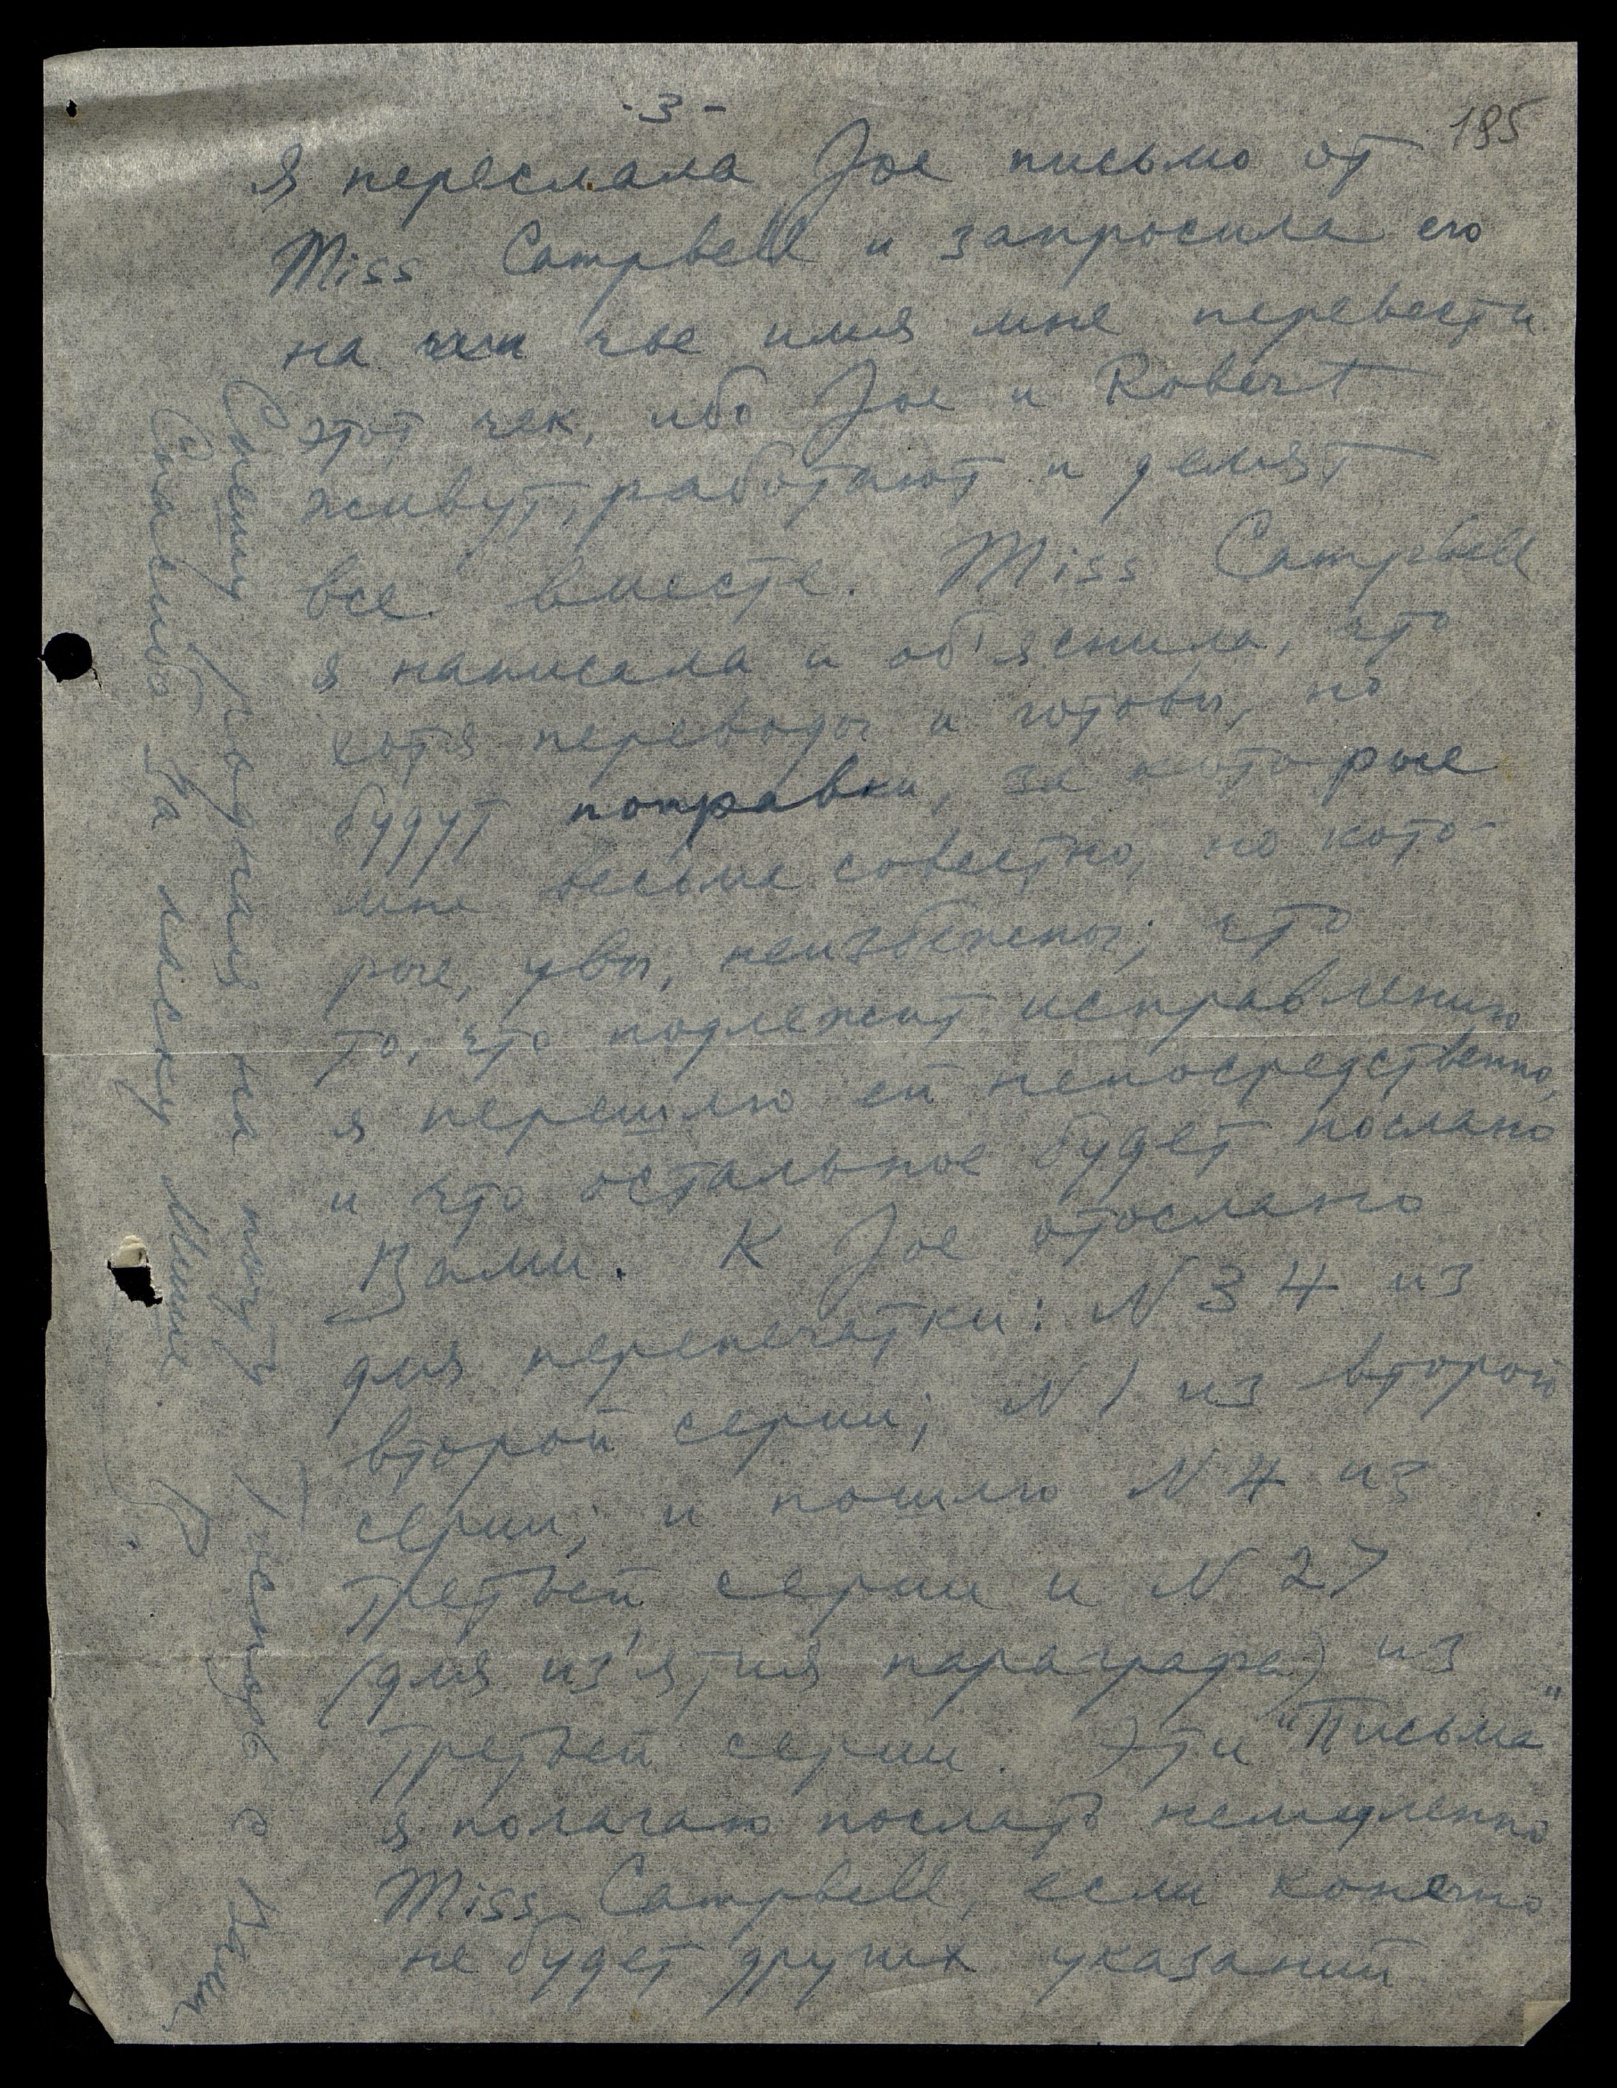 -3-
195
Я переслала Joe письмо от
Miss Campbell и запросила его
на чье имя мне перевести
этот чек, ибо Joe и Robert
живут, работают и делят
все вместе. Miss Campbell
я написала и об'яснила, что
хотя переводы и готовы, но
будут поправки, за которые
мне весьма совестно, но кото-
рые, увы, неизбежны; что
то, что подлежит исправлению
я перешлю ей непосредственно,
и что остальное будет послано
Вами. К Joe отослано
для перепечатки: N 34 из
второй серии; N 1 из второй
серии; и пошлю N 4 из
третьей серии и N 27
(для из'ятия параграфа) из
третьей серии. Эти "Письма"
я полагаю послать немедленно
Miss Campbell, если конечно
не будет других указаний
Спешу на почту Сейчас с Вами
Спасибо за ласку Мишу.